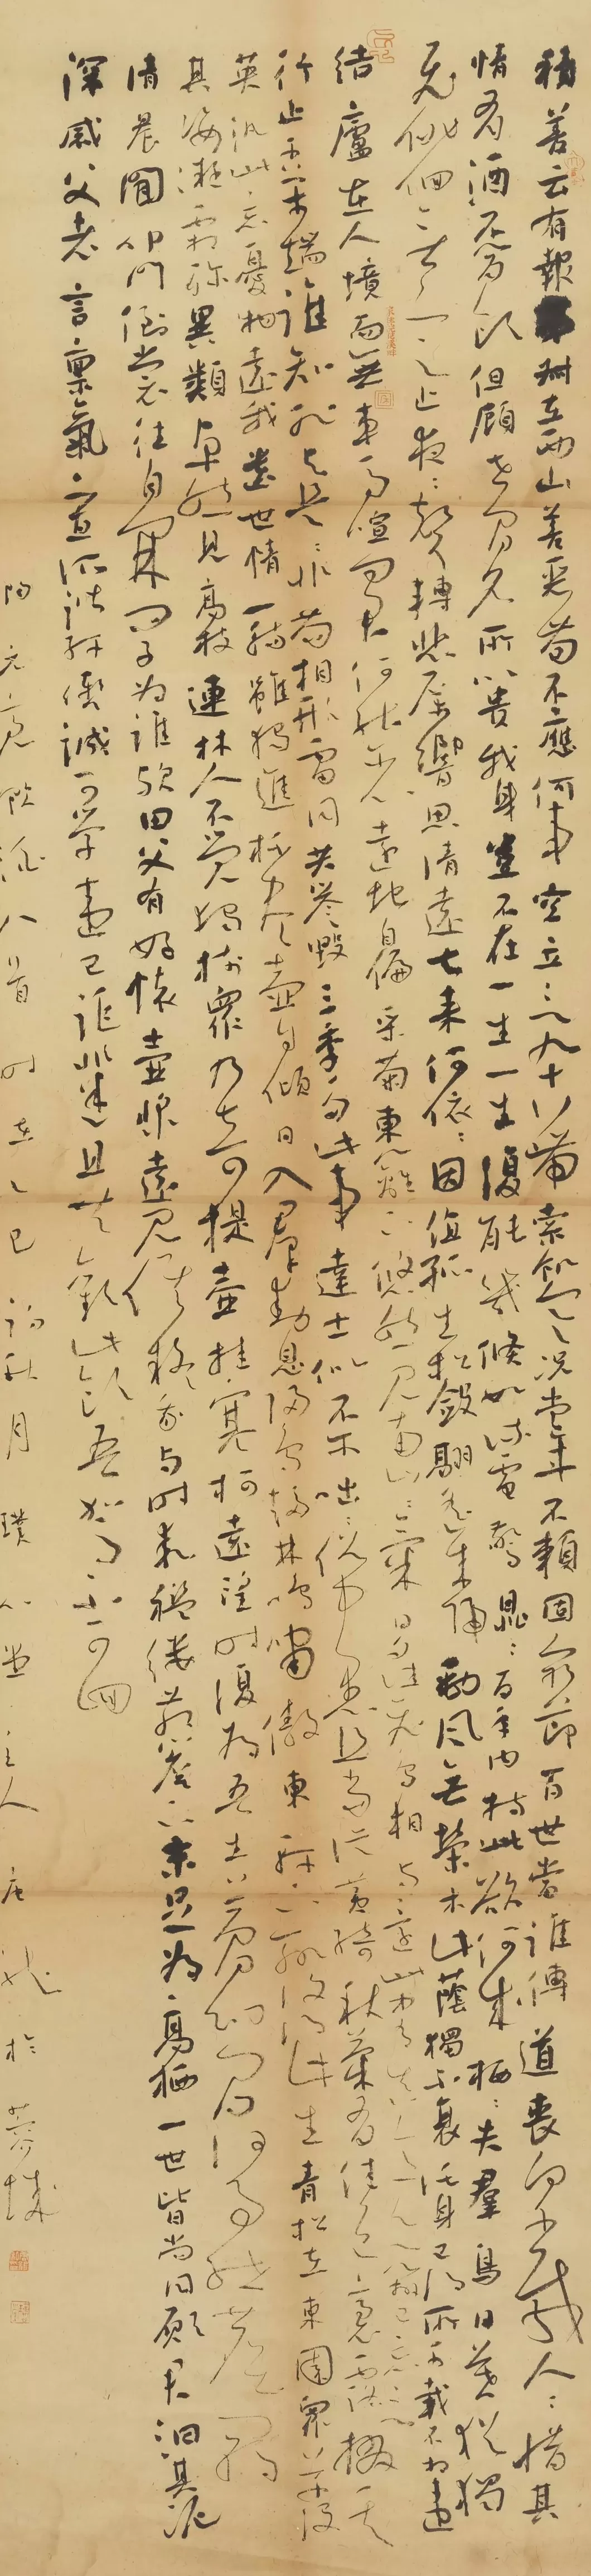 積善云有報叔在西山善惡苟不應何事空立言九十行帶索飢寒況當年不賴固窮節百世當誰傳道喪向千載人〻惜其
情有酒不肯飲但顧世間名所以貴我身豈不在一生一生復能幾倏如流電驚鼎〻百年內持此欲何成栖〻失群鳥日暮猶獨
飛徘徊無定止夜〻聲轉悲厲響思清遠去來何依〻因值孤生松斂翮遙來歸勁風無榮木此蔭獨不衰託身已得所千載不相違
結廬在人境而無車馬喧問君何能尔心遠地自偏采菊東籬下悠然見南山〻氣日夕佳飛鳥相與還此中有真意欲辨已忘言
行止千萬端誰知非與是〻非苟相形雷同共譽毀三季多此事達士似不尔咄〻俗中愚且當從黃綺秋菊有佳色裛露掇其
英汎此忘憂物遠我遺世情一觴雖獨進杯盡壺自傾日入群動息歸鳥趨林鳴嘯傲東軒下聊復得此生青松在東園眾草沒
其姿凝霜殄異類卓然見高枝連林人不覺獨樹眾乃奇提壺挂寒柯遠望時復為吾生夢幻間何事紲塵羈
清晨聞叩門倒裳往自開問子為誰歟田父有好懷壺漿遠見候疑我與時乖襤縷茅簷下未足為高栖一世皆尚同願君汩其泥
深感父老言稟氣寡所諧紆轡誠可學違己詎非迷且共歡此飲吾駕不可回
陶元亮飲酒八首時在乙巳初秋月璞心堂主人於蓉城